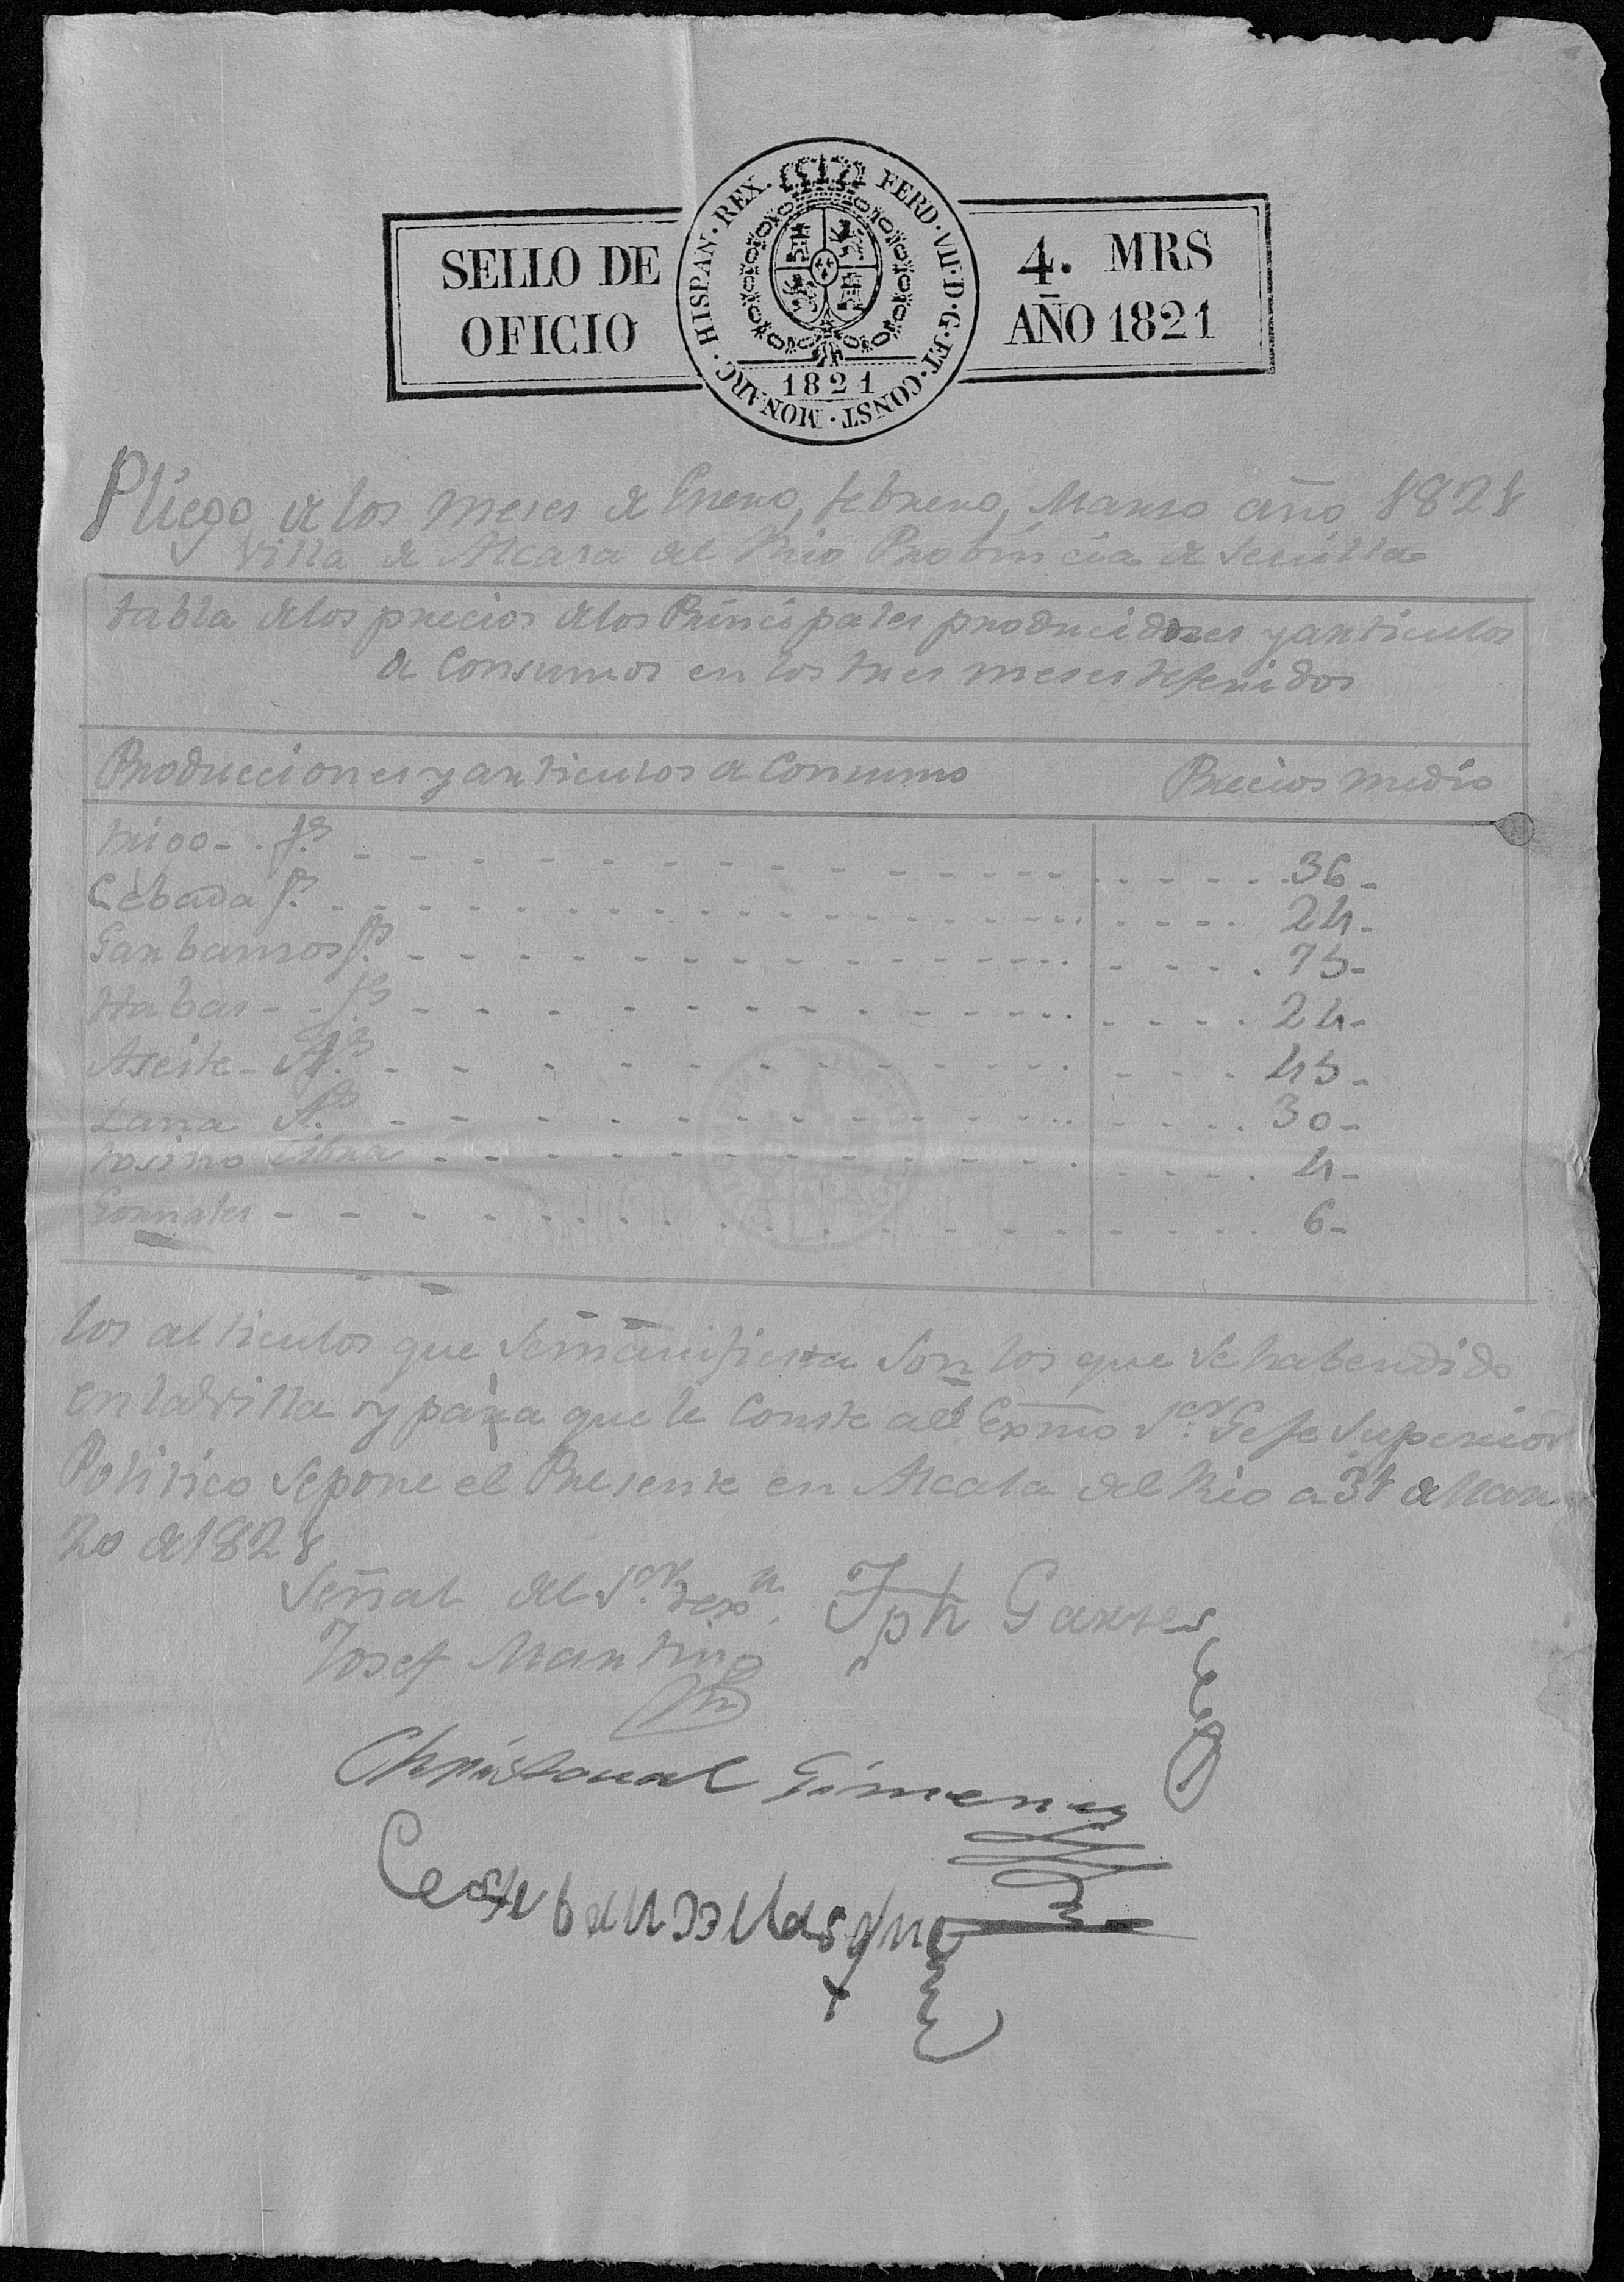 SELLO DE
OFICIO
HISPAN · REX. FERD · VII · D · G · ET · CONST · MONARC ·
1821
4. MRS
AÑO 1821
Pliego de los meses de Enero, febrero, Marso año 1821
Villa de Alcara del Rio Probincia de Sevilla
tabla de los precios de los Principales producidores y articulos
de Consumos en los tres meses referidos
Producciones y articulos de Consumo Precios medio
trigo - . f.s 36 -
Cebada f.s 24 -
Garbansos f.s 75 -
Habas - - f.s 24 -
Aseite - A.s 45 -
Lana A.s 30 -
tosino libra 4 -
Gornales 6 -
los alticulos que se mañifiesta Son los que se ha bendido
en la Villa y para que le Conste al Exmo S.or Gefe Superior
Politico Se pone el Presente en Alcala del Rio a 31 de Mar
zo de 1821
Señal del S.or
Josef Martin
Jph Garses
Christoual Gimenes